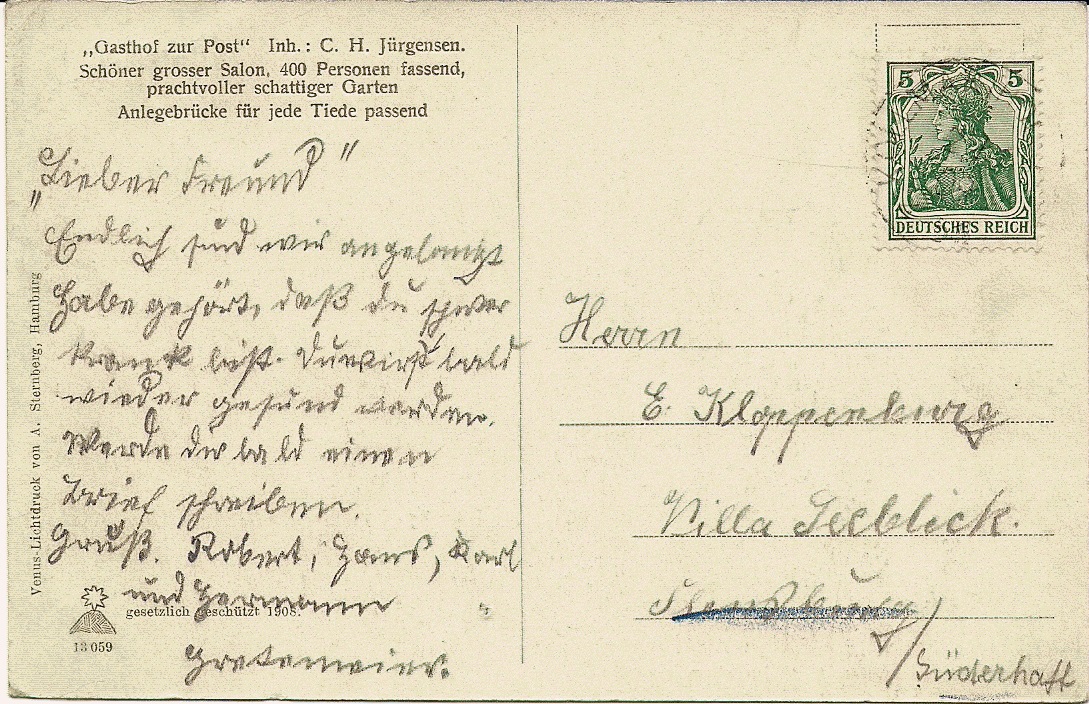 „Gasthof zur Post“ Inh.: C. H. Jürgensen.
Schöner grosser Salon, 400 Personen fassend,
prachtvoller schattiger Garten
Anlegebrücke für jede Tiede passend
„Lieber Freund“
Endlich sind wir angelangt
Habe gehört, daß du schwer
krank bist. Du wirst bald
wieder gesund werden.
Werde dir bald einen
Brief schreiben.
Gruß. Robert, Hans, Karl
und Hermann
Gretemeier.
Venus-Lichtdruck von A. Sternberg, Hamburg
gesetzlich geschützt 1908.
13 059
5 5
DEUTSCHES REICH
Herrn
E. Kloppenburg
Villa Seeblick.
Flensburg /
Süderhaff